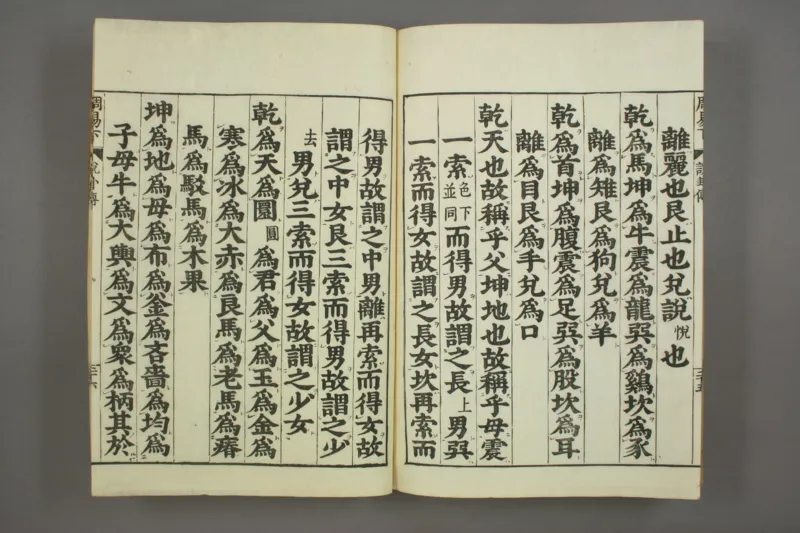 離麗也艮止也兌說悅也
乾爲馬坤爲牛震爲龍巽爲鷄坎爲豕
離爲雉艮爲狗兌爲羊
乾爲首坤爲腹震爲足巽爲股坎爲耳
離爲目艮爲手兌爲口
乾天也故稱乎父坤地也故稱乎母震
一索色下並同而得男故謂之長上男巽
一索而得女故謂之長女坎再索而
得男故謂之中男離再索而得女故
謂之中女艮三索而得男故謂之少
去男兌三索而得女故謂之少女
乾爲天爲圜圓爲君爲父爲玉爲金爲
寒爲冰爲大赤爲良馬爲老馬爲瘠
馬爲駁馬爲木果
坤爲地爲母爲布爲釜爲吝嗇爲均爲
子母牛爲大輿爲文爲衆爲柄其於
周易下